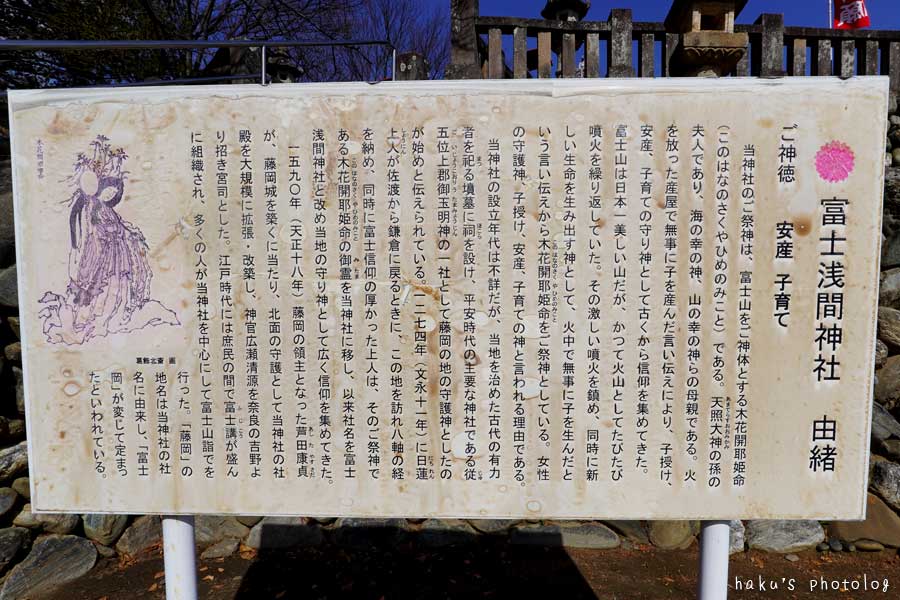 富士浅間神社 由緒
ご神徳 安産 子育て
当神社のご祭神は、富士山をご神体とする木花開耶姫命
(このはなのさくやひめのみこと)である。天照大神の孫の
夫人であり、海の幸の神、山の幸の神らの母親である。火
を放った産屋で無事に子を産んだ言い伝えにより、子授け、
安産、子育ての守り神として古くから信仰を集めてきた。
富士山は日本一美しい山だが、かつて火山としてたびたび
噴火を繰り返していた。その激しい噴火を鎮め、同時に新
しい生命を生み出す神として、火中で無事に子を生んだと
いう言い伝えから木花開耶姫命をご祭神としている。女性
の守護神、子授け、安産、子育ての神と言われる理由である。
当神社の設立年代は不詳だが、当地を治めた古代の有力
者を祀る墳墓に祠を設け、平安時代の主要な神社である従
五位上郡御玉明神の一社として藤岡の地の守護神としたの
が始めと伝えられている。一二七四年(文永十一年)に日蓮
上人が佐渡から鎌倉に戻るときに、この地を訪れ八軸の経
を納め、同時に富士信仰の厚かった上人は、そのご祭神で
ある木花開耶姫命の御霊を当神社に移し、以来社名を富士
浅間神社と改め当地の守り神として広く信仰を集めてきた。
一五九〇年(天正十八年)藤岡の領主となった芦田康貞
が、藤岡城を築くに当たり、北面の守護として当神社の社
殿を大規模に拡張・改築し、神官広瀬清源を奈良の吉野よ
り招き宮司とした。江戸時代には庶民の間で富士講が盛ん
に組織され、多くの人が当神社を中心にして富士山詣でを
行った。「藤岡」の
地名は当神社の社
名に由来し、「富士
岡」が変じて定まっ
たといわれている。
木花開耶姫命
葛飾北斎 画
haku's photolog